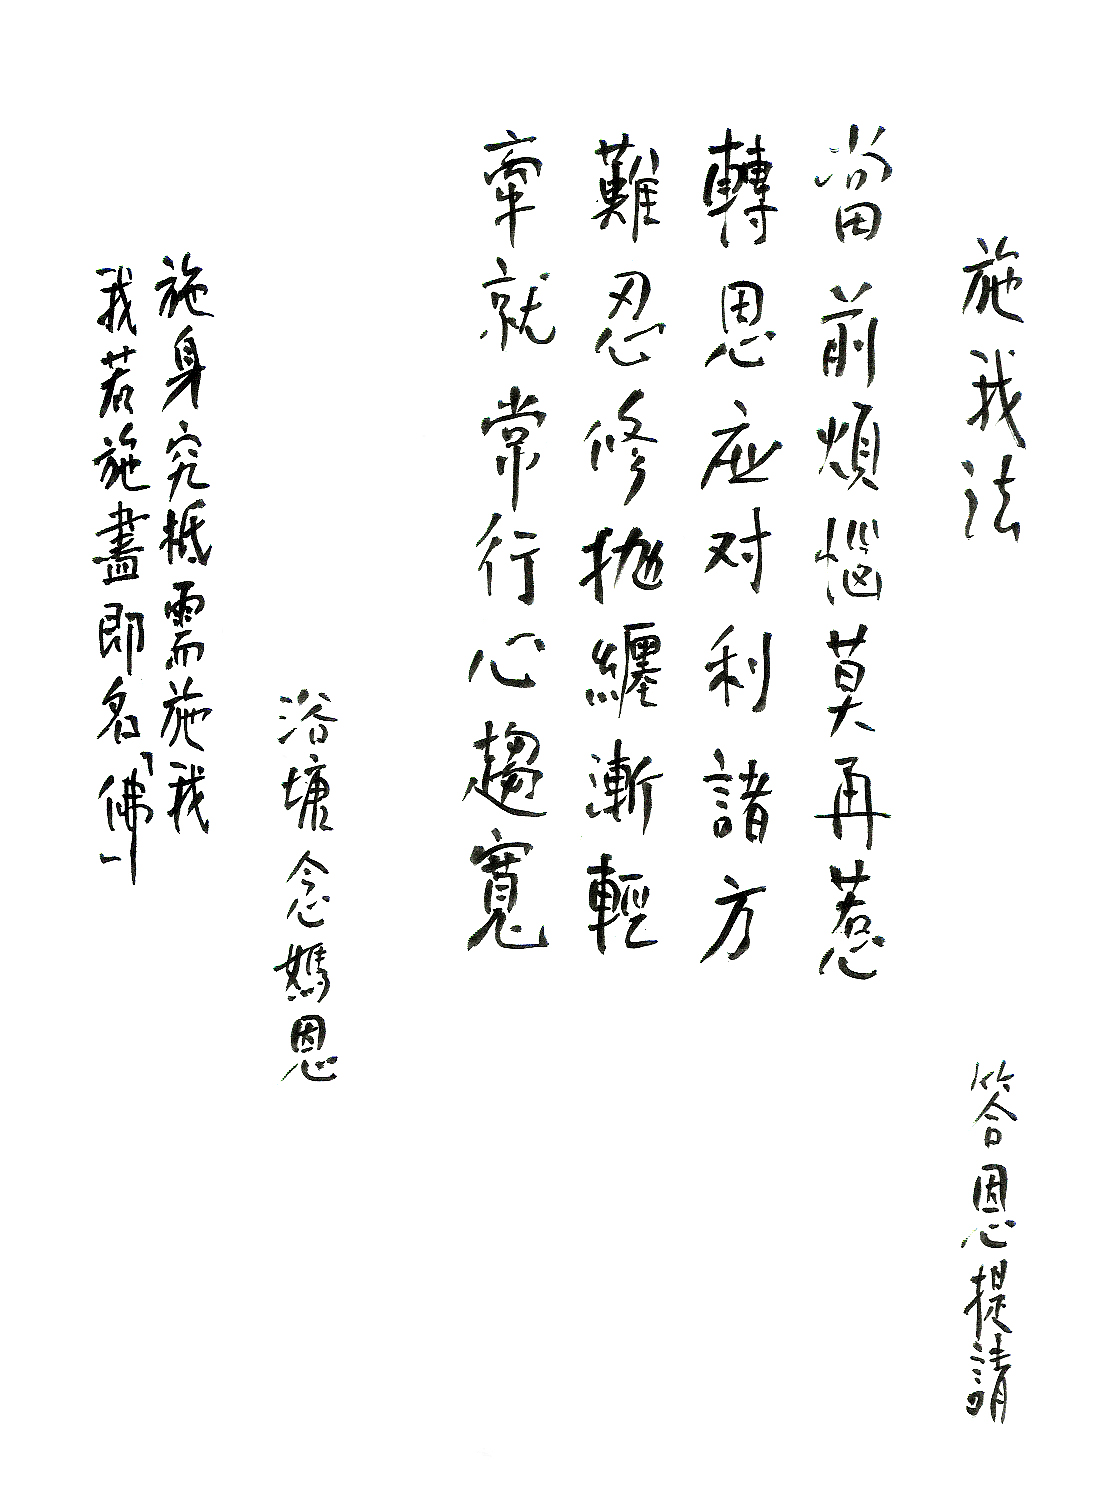 施我法
答恩提請
當前煩惱莫再惹
轉思应对利諸方
難忍修拋纏漸輕
牽就常行心趨寬
浴塘念媽恩
施身究柢需施我
我若施盡即名「佛」